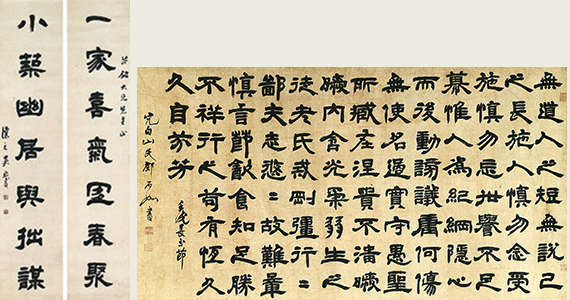 一家喜氣春聚
小築幽居與拙謀
無道人之短無說己
之長施人慎勿念受
施慎勿忘世譽不足
慕惟人為紀綱隱心
而後動謗議庸何傷
無使名過實守愚聖
所臧在涅貴不淄曖
曖內含光柔弱生之
徒老氏戒剛彊行〻
鄙夫志悠〻故難量
慎言節飲食知足勝
不祥行之苟有恆久
久自芬芳
完白山民鄧石如書